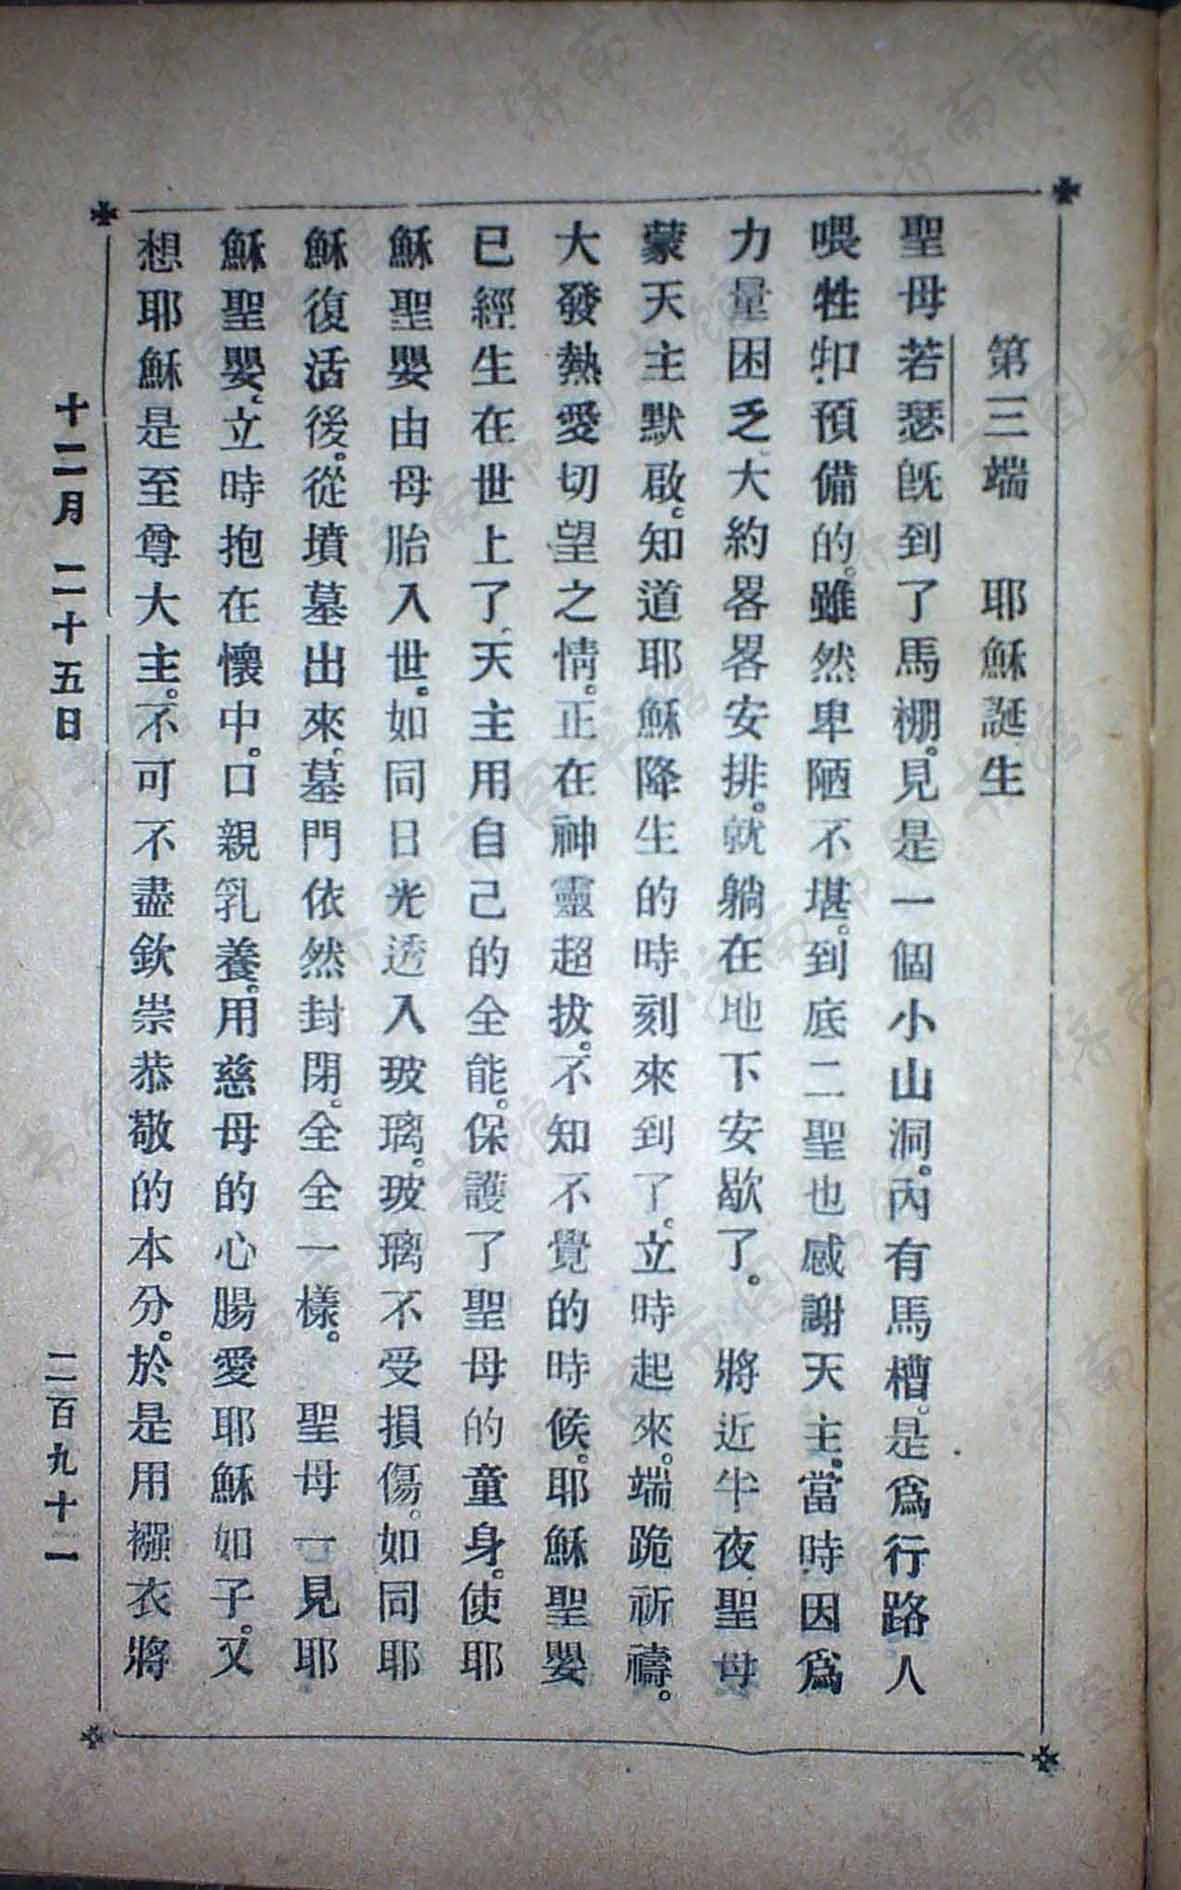 第三端　耶穌誕生
聖母若瑟旣到了馬棚。見是一個小山洞。內有馬槽。是爲行路人
喂牲㸧預備的。雖然卑陋不堪。到底二聖也感謝天主。當時因爲
力量困乏、大約畧畧安排。就躺在地下安歇了。　將近半夜、聖母
蒙天主默啟。知道耶穌降生的時刻來到了。立時起來。端跪祈禱。
大發熱愛切望之情。正在神靈超拔。不知不覺的時候。耶穌聖嬰
已經生在世上了、天主用自己的全能。保護了聖母的童身。使耶
穌聖嬰由母胎入世。如同日光透入玻璃。玻璃不受損傷。如同耶
穌復活後。從墳墓出來、墓門依然封閉。全全一樣。　聖母一見耶
穌聖嬰、立時抱在懷中。口親乳養。用慈母的心腸愛耶穌如子。又
想耶穌是至尊大主。不可不盡欽崇恭敬的本分。於是用襁衣將
十二月二十五日　二百九十一
济南市图书馆